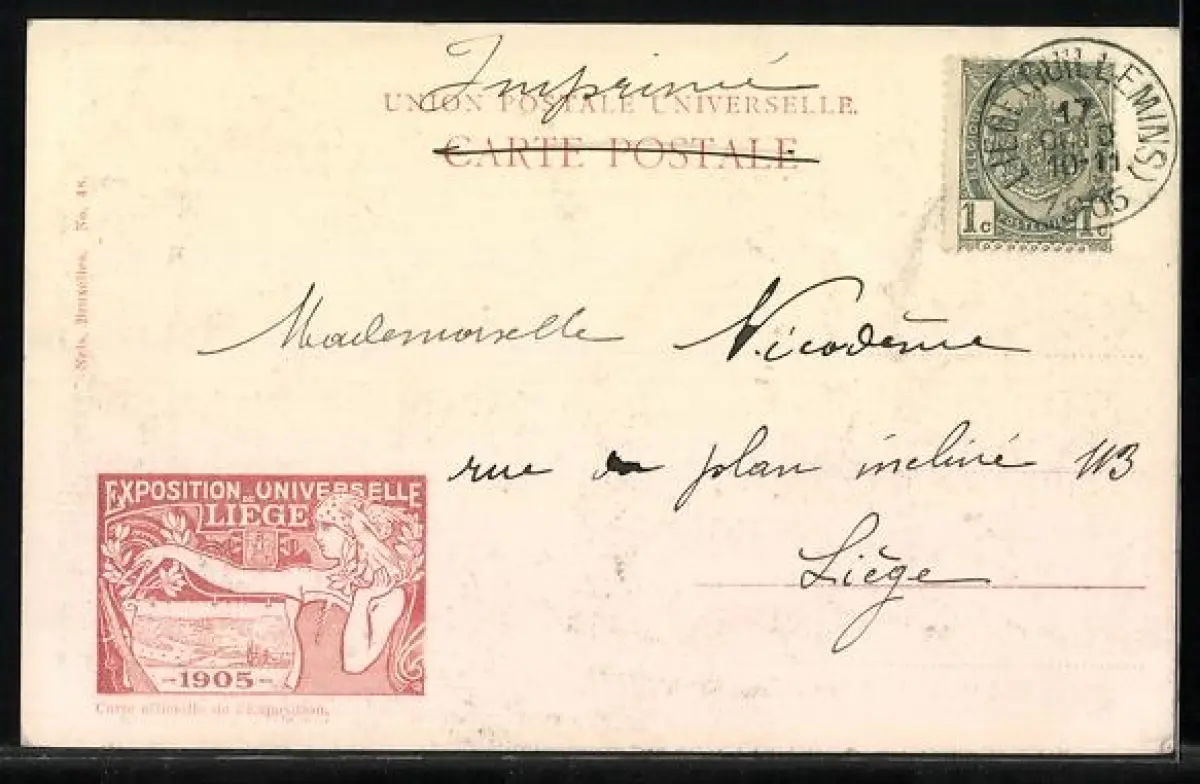 Imprimé
UNION POSTALE UNIVERSELLE.
CARTE POSTALE
LIÉGE (GUILLEMINS)
17
10-11
1905
1c 1c
Nels, Bruxelles. No. 48.
Mademoiselle Nicodème
rue du plan incliné 113
Liège
EXPOSITION UNIVERSELLE
DE
LIÉGE
1905
Carte officielle de l'Exposition.